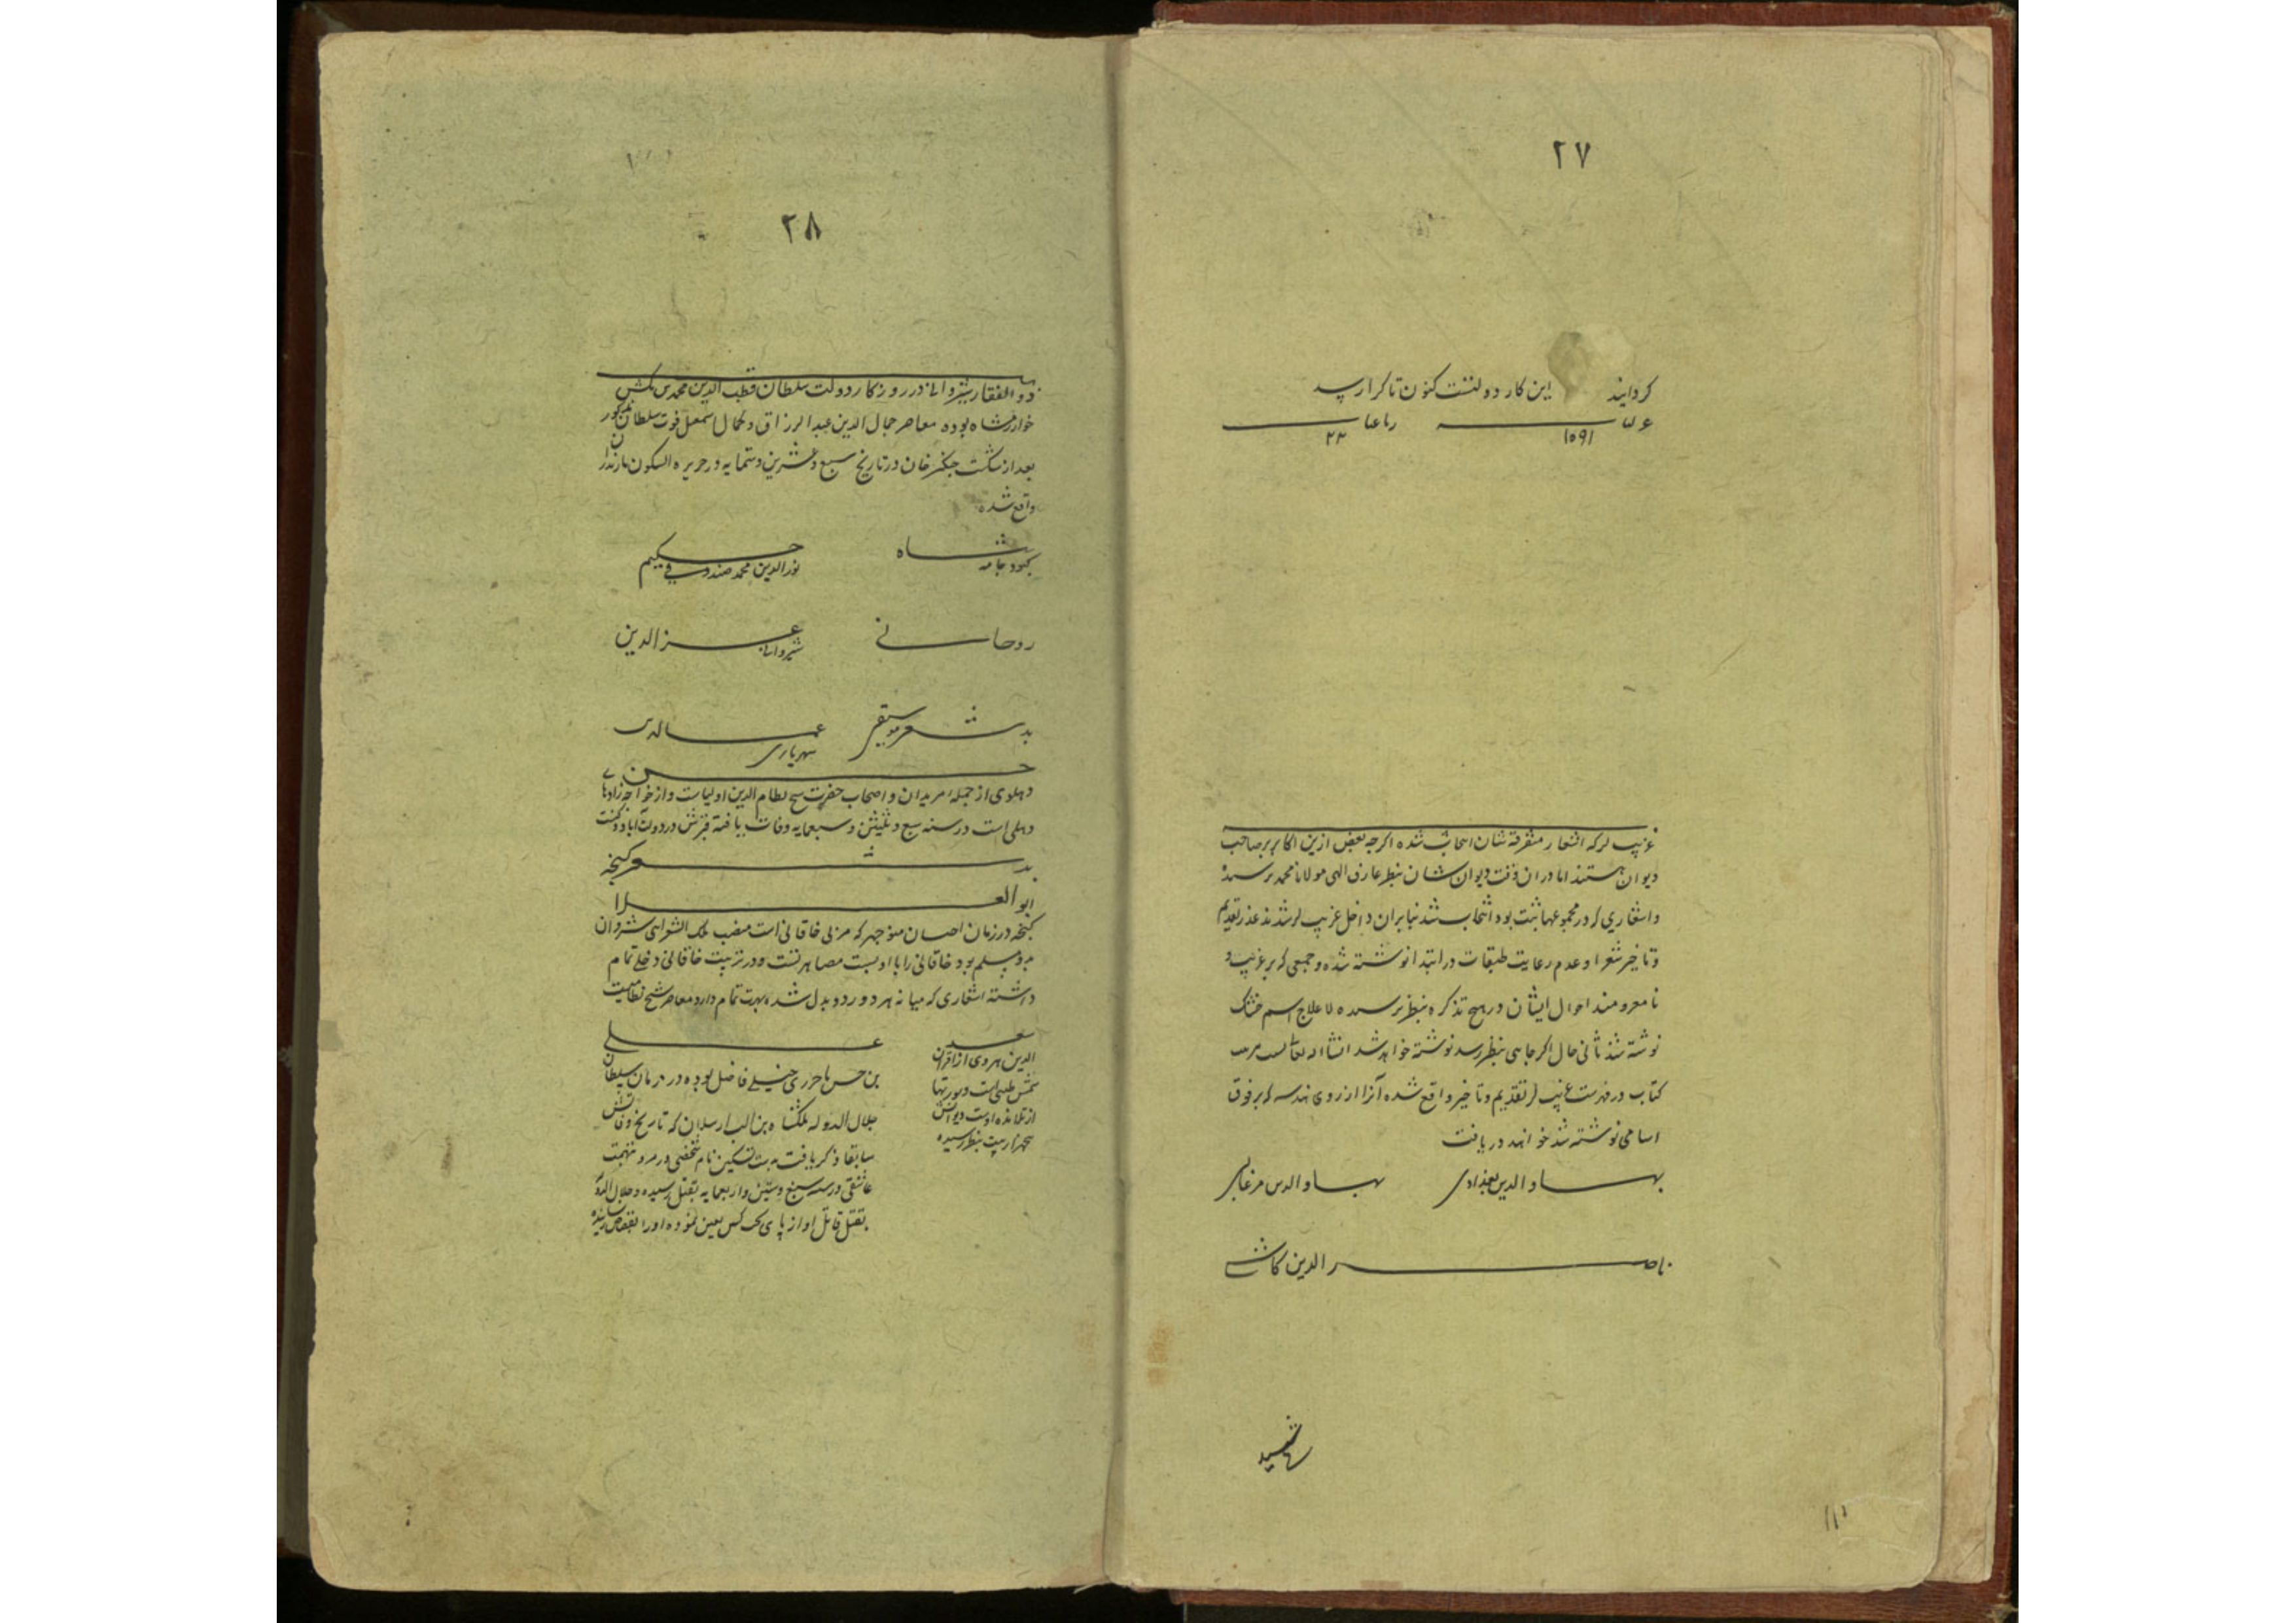 ۲۷
گردانید این کار دولتست کنون تا کرا رسد
۱۵۹۱ ۲۳
اشعار متفرقه شان انتخاب شده اگرچه بعض ازین اکابر صاحب
دیوان هستند اما در ان وقت دیوان شان بنظر عارف الهی مولانا محمد نرسیده
و اشعاری که در مجموعها ثبت بود انتخاب شد بنابران داخل شد عذر تقدیم
و تاخیر شعرا و عدم رعایت طبقات در ابتدا نوشته شده و جمعی که
احوال ایشان در هیچ تذکره بنظر نرسیده لاعلاج اسم خشک
نوشته شد ثانی حال اگر جایی بنظر رسد نوشته خواهد شد انشا الله تعالی
کتاب در فهرست تقدیم و تاخیر واقع شده آنرا از روی هندسه که بر فوق
اسامی نوشته شد خواهند دریافت
بهاو الدین بغدادی بهاو الدین
ناصر الدین کاشی
۲۸
ذو الفقار شروانی در روزکار دولت سلطان قطب الدین محمد بن تکش
خوارزمشاه بوده معاصر جمال الدین عبد الرزاق و کمال اسمعیل فوت سلطان مذکور
بعد از شکست جنکیز خان در تاریخ سبع و عشرین و ستمایه در جزیره السکون مازندران
واقع شده
شاه کبود جامه حکیم نور الدین محمد
روحانی عز الدین شیروانی
بدر شعر شهریاری
حسن
دهلوی از جمله مریدان و اصحاب حضرت شیخ نظام الدین اولیاست و از خواجه زادها
دهلی است در سنه سبع و ثلثین و سبعمایه وفات یافته قبرش در دولت آباد
بدر شعر کنجه
ابو العلا
کنجه در زمان منوچهر که مربی خاقانی است منصب ملک الشعرای شروان
بدو مسلم بود خاقانی را با او نسبت مصاهرتست و در تربیت خاقانی دخلی تمام
داشته اشعاری که میانه هر دو رد و بدل شده شهرت تمام دارد معاصر شیخ نظامیست
سعد
الدین هروی از اقران
شمس طبسی است
از تلامذه اوست دیوانش
بنظر رسیده
علی
بن حسن باخرزی خیلی فاضل بوده در زمان سلطان
جلال الدوله ملکشاه بن الب ارسلان که تاریخ وفاتش
سابقا ذکر یافت نام شخصی در مرو بتهمت
عاشقی در سنه سبع و ستین و اربعمایه بقتل رسیده و جلال الدوله
بقتل قاتل او تعین نموده او را بقصاص رسانیده